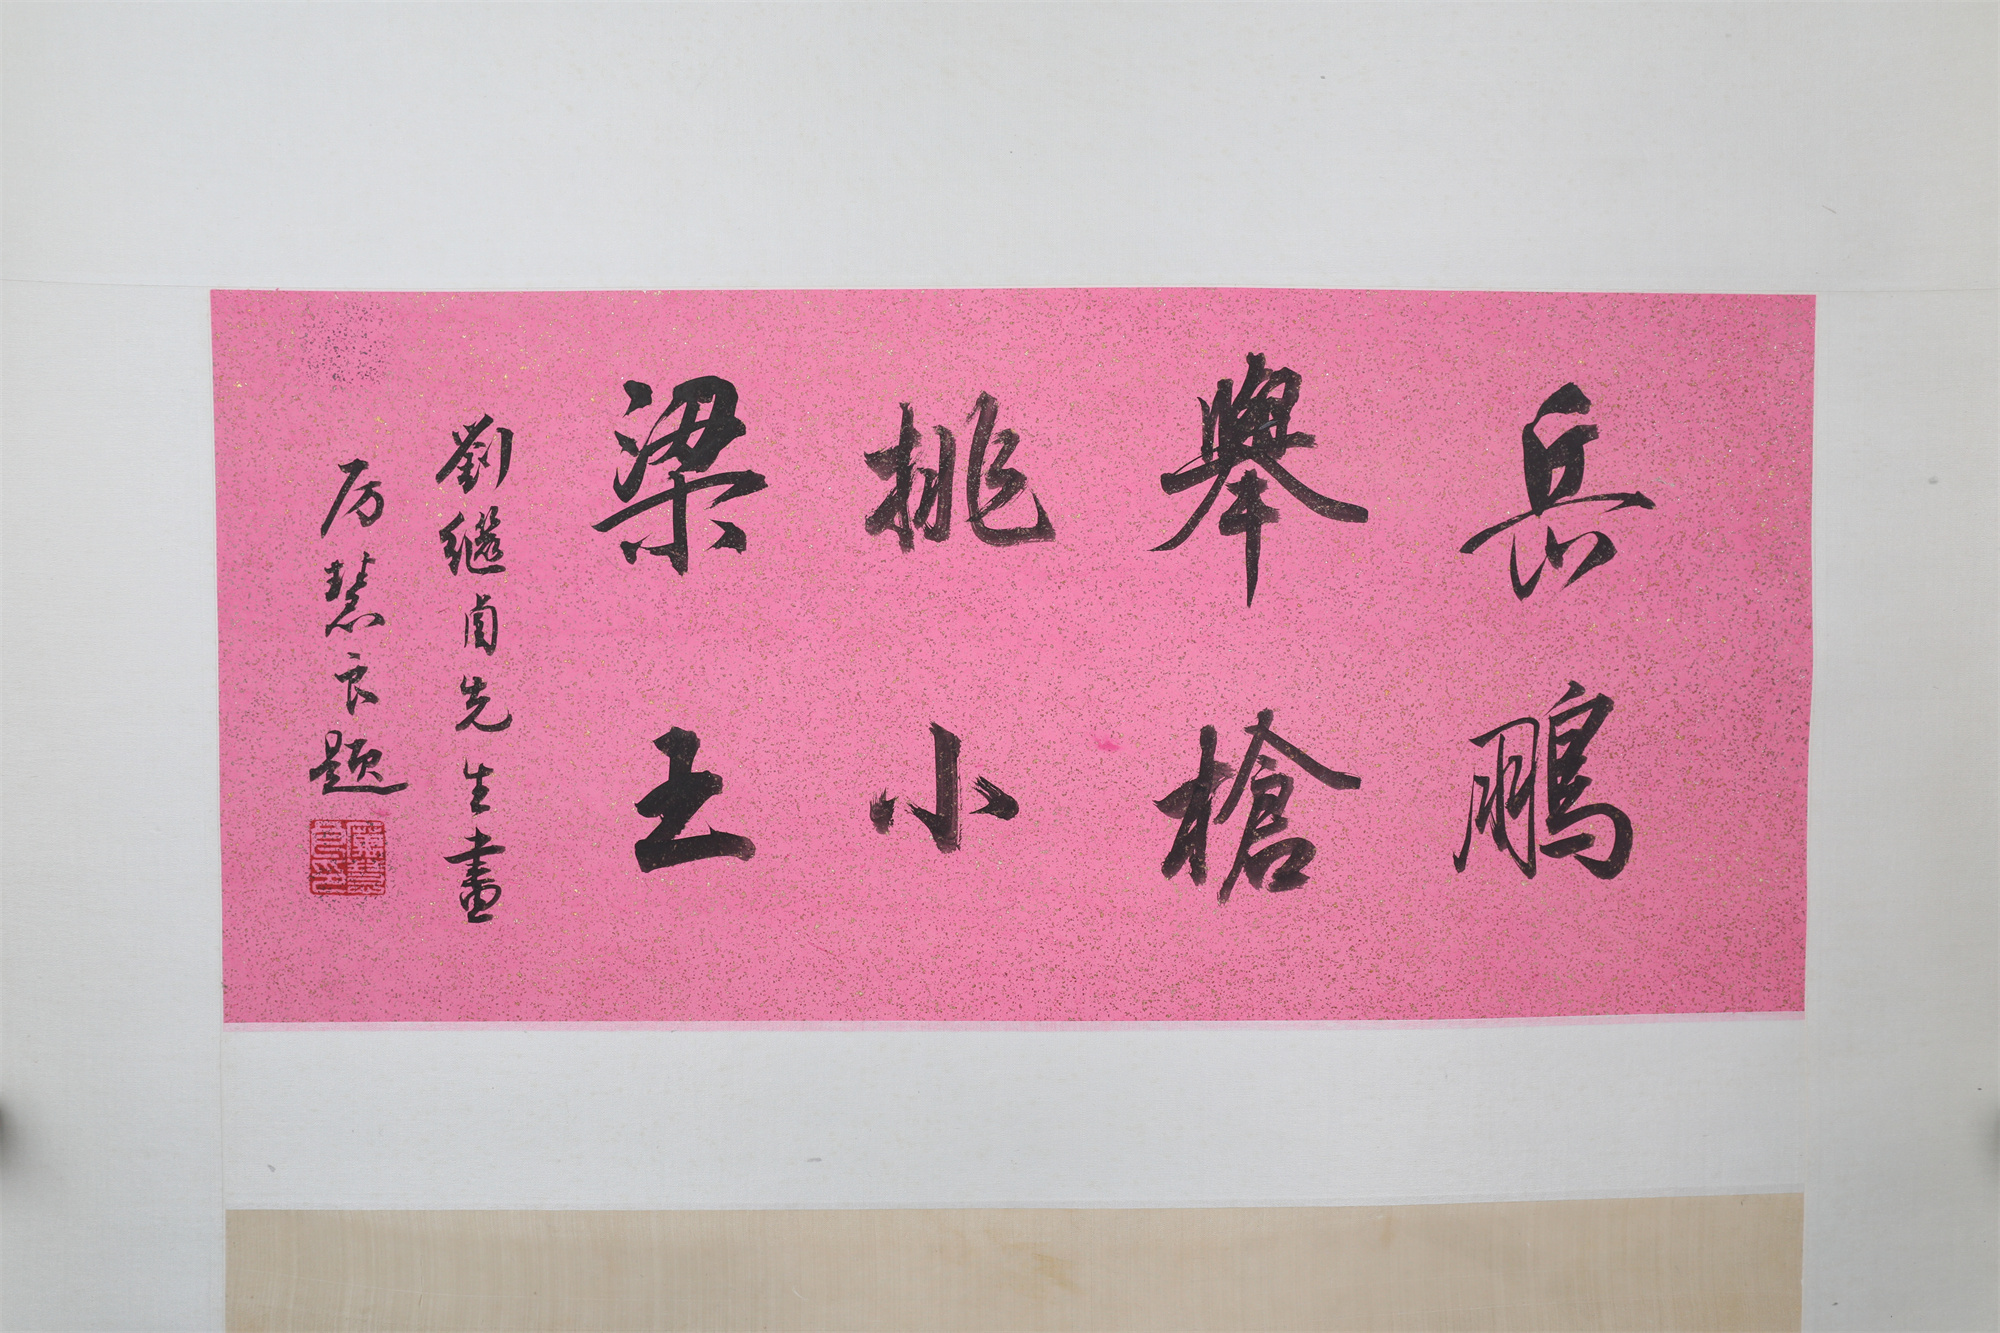 岳鵬
舉槍
挑小
梁王
劉繼卣先生畫
厉慧良題
厲慧良印